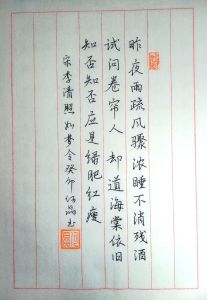 昨夜雨疏风骤浓睡不消残酒
试问卷帘人 却道海棠依旧
知否知否应是绿肥红瘦
宋李清照如梦令癸卯